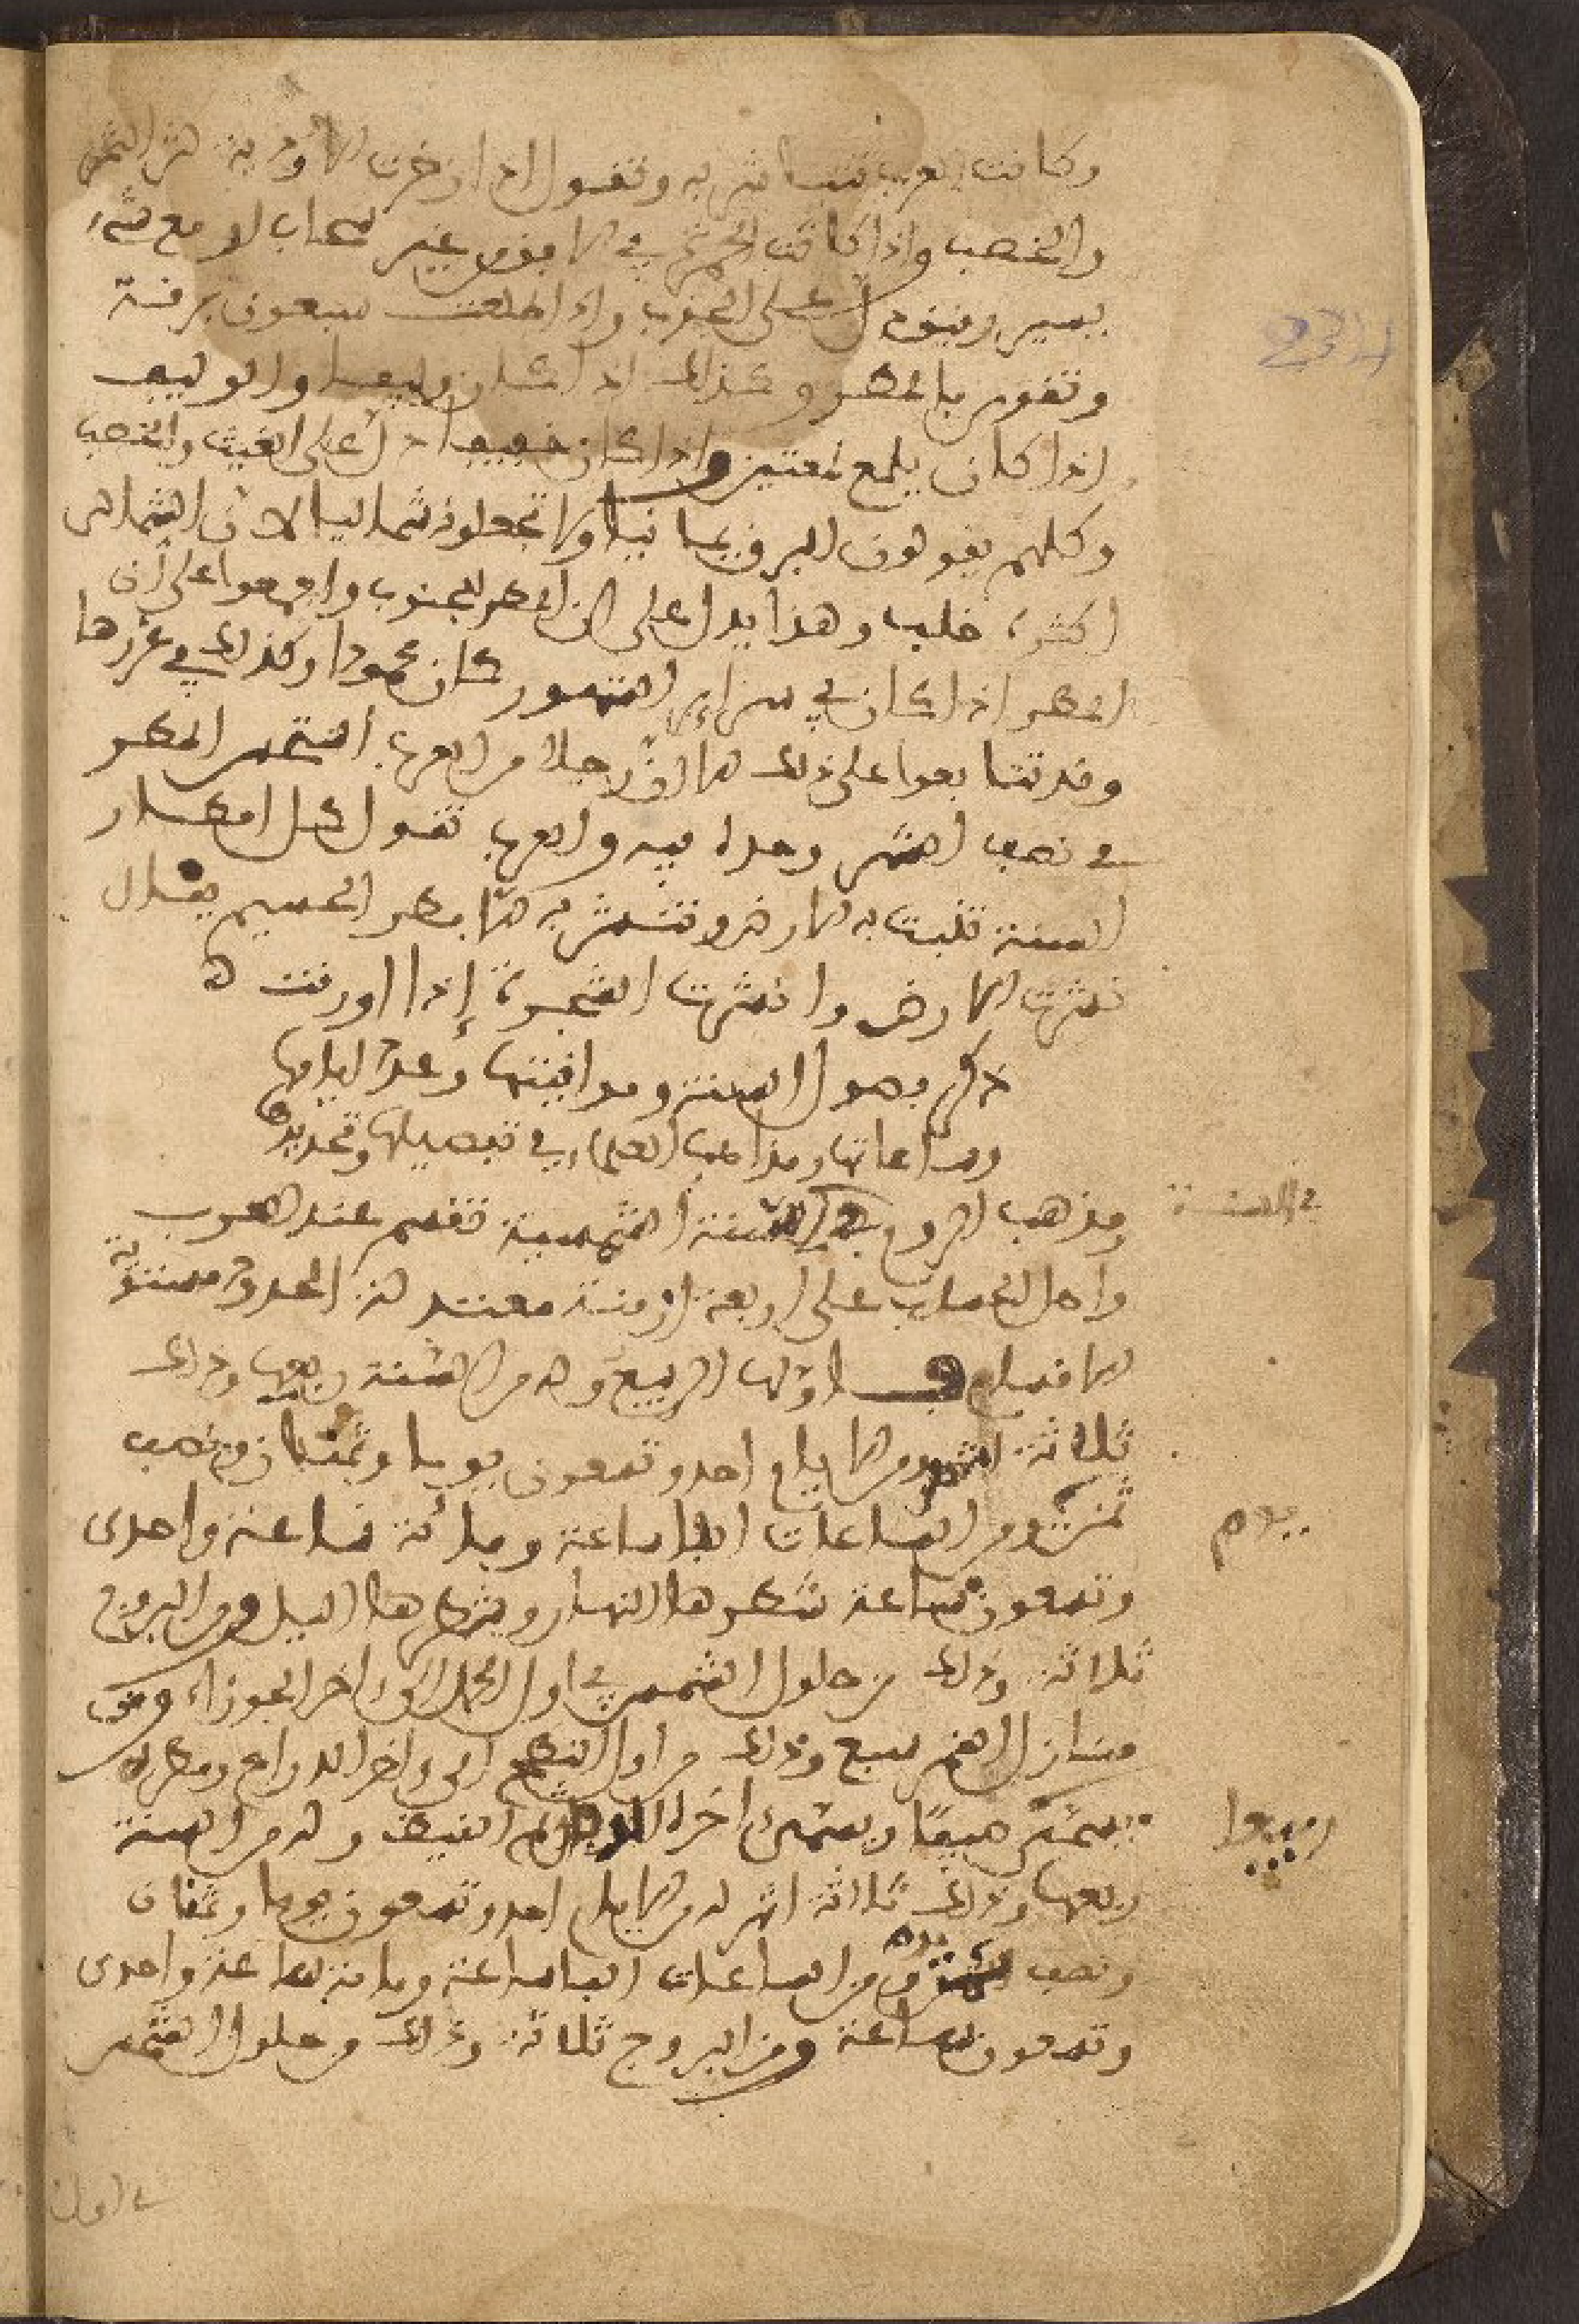 وكانت العرب تتباشر به وتقول اذا زخرت الاودية كثر الثمر
والخصب واذا كانت الحمرة في الافق من غير سحاب او مع شيء
يسير منه دل على الجدب واذا لمعت سبعون برقة
وتقوس بالمطر وكذلك اذا كان وليفا والوليف
اذا كان يلمع لمعتين واذا كان خفيفا دل على الغيث والخصب
وكلهم يقولون البرق يمانيا ولا تجعلونه شماليا لان الشمالي
اكثره خلب وهذا يدل على ان المطر للجنوب واجمعوا على ان
المطر اذا كان في سرار الشهور كان محمودا وكذلك في غررها
وقد تتابعوا على ذلك الا ان رجلا من العرب استمر المطر
في نصف الشهر وحده فيه والعرب تقول كل امطار
السنة تنبت به الارض وتتمشر به الا مطر الحميم يقال
تمشرت الارض وامشرت الشجرة إذا اورقت ه
ذكر فصول السنة ومواقيتها وعدد ايامها
وساعاتها ومذاهب العلماء في تفصيلها وتحديدها
ومذهب الروم السنة الشمسية تقسم عند العرب
في السنة
واهل الحساب على اربعة ازمنة معتدلة الحدود مستوية
الاقسام اولها الربيع وله من السنة ربعها وذلك
ثلاثة اشهر من الايام احد وتسعون يوما وثمنان ونصف
ثمن ومن الساعات الفا ساعة ومائة ساعة واحدى
يوم
وتسعون ساعة شطرها النهار وشطرها الليل ومن البروج
ثلاثة وذلك من حلول الشمس في اول الحمل الى اخر الجوزاء ومن
منازل القمر سبع وذلك من اول النطح الى اخر الذراع ومطره
يسمى صيفا ويسمى اخره القيظ وله من السنة
ربيعا
ربعها وذلك ثلاثة اشهر له من الايام احد وتسعون يوما وثمنان
ونصف ثمن يوم ومن الساعات الفا ساعة ومائة ساعة واحدى
وتسعون ساعة ومن البروج ثلاثة وذلك من حلول الشمس
في اول
234